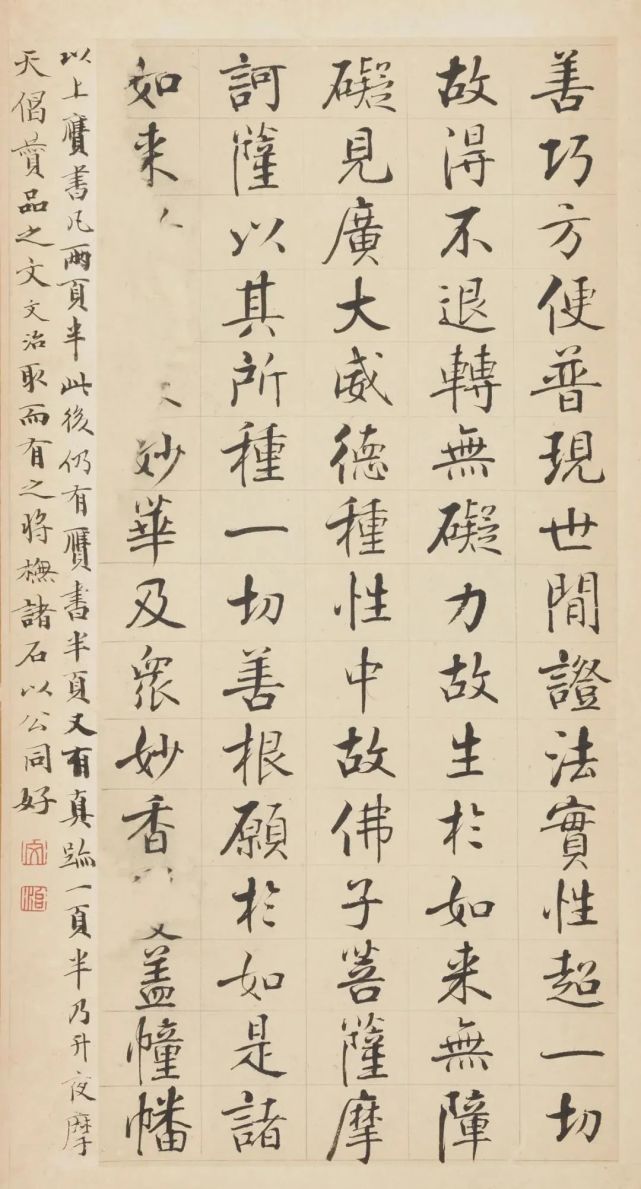 善巧方便普現世閒證法實性超一切
故得不退轉無礙力故生於如来無障
礙見廣大威德種性中故佛子菩薩摩
訶薩以其所種一切善根願於如是諸
如来妙華及眾妙香蓋幢幡
以上贋書凡兩頁半此後仍有贋書半頁又有真跡一頁半乃升夜摩
天偈贊品之文文治取而有之將橅諸石以公同好
文
治